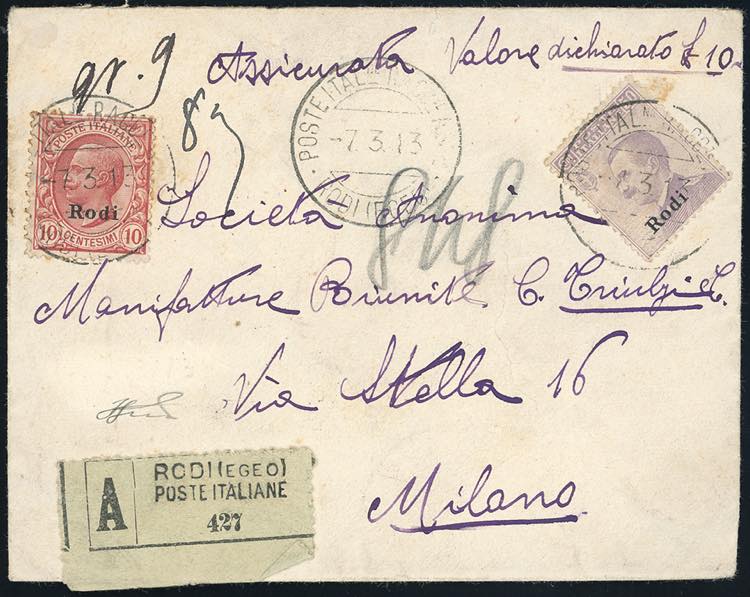 gr. 9
Assicurata Valore dichiarato £ 10
POSTE ITALIANE
-7.3.13
Rodi
10 CENTESIMI 10
POSTE ITAL
-7.3.13
RODI (EGEO)
3.13
Rodi
Società Anonima
Manifatture Riunite C. Triulzi & C.
Via Stella 16
Milano
A
RODI (EGEO)
POSTE ITALIANE
427